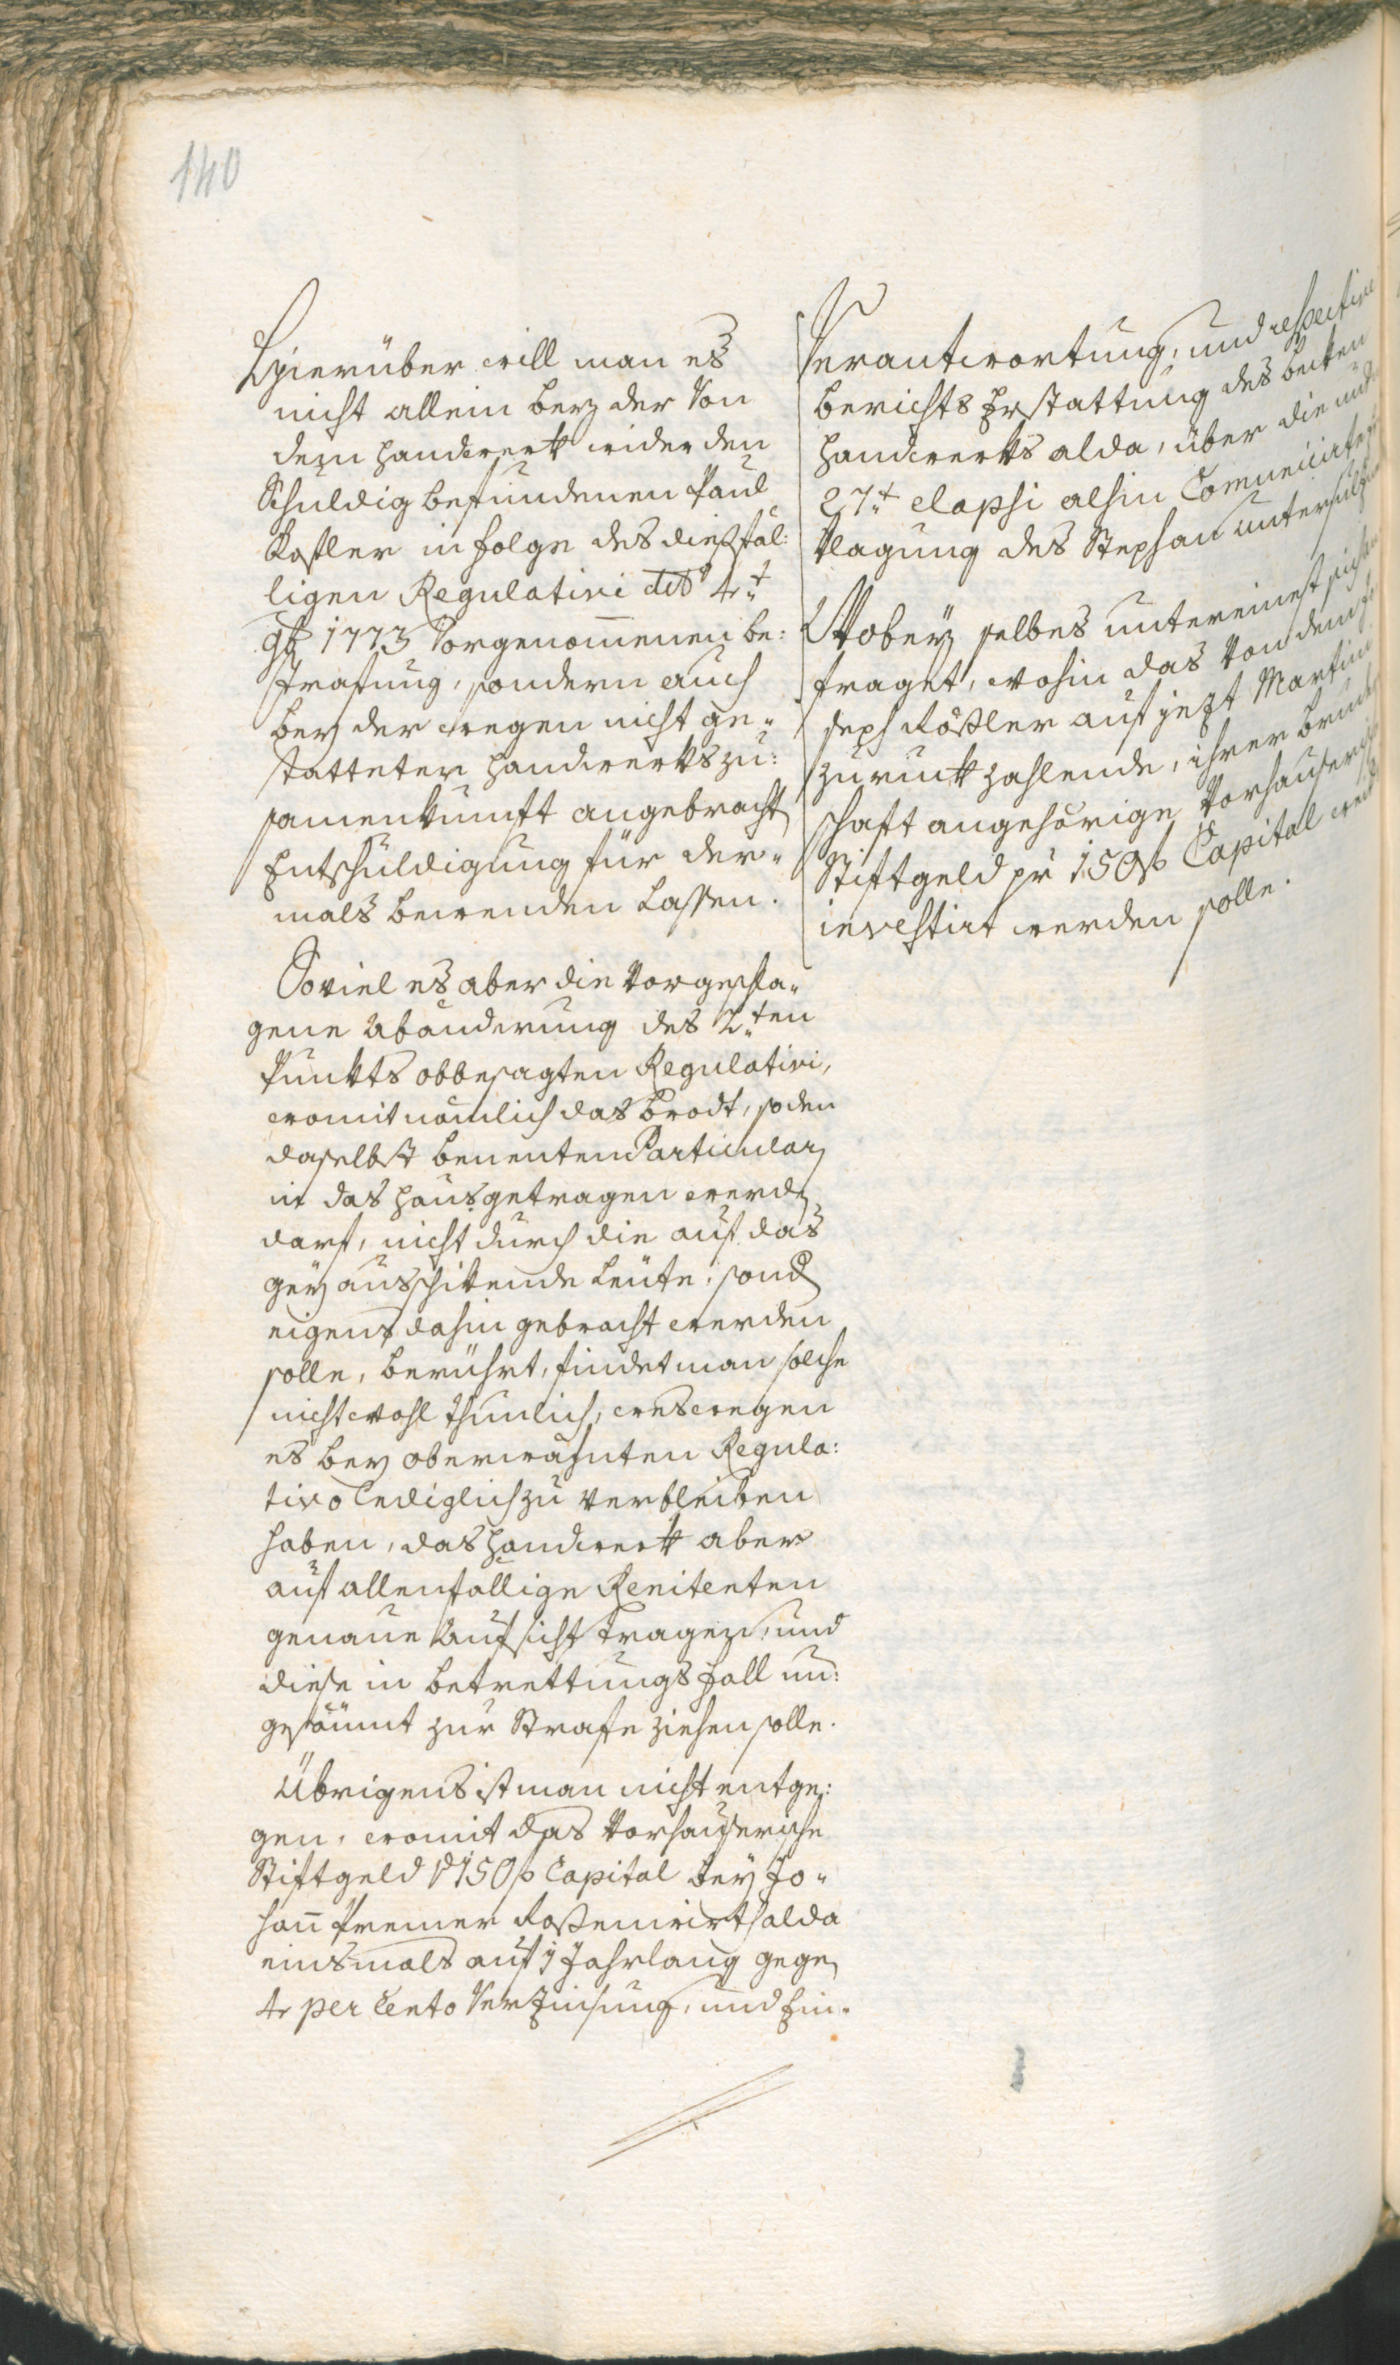 140
Hierüber will man es
nicht allein bey der Von
dem Handwerk wider den
Schuldig befundenen Paul
Kastler in Folge des dießfäl:
ligen Regulativi ddo 4.t
9b 1773 Vorgenom̄enen be:
strafung, sondern auch
bey der wegen nicht ge-
statteter Handwerkszu:
samenkunft angebracht
Entschuldigung für der-
mals bewenden lassen.
Soviel es aber die Vorgeschla-
gene Abänderung des 2.ten
Punkts obbesagten Regulativi,
womit nämlich das Brodt, so den
daselbst benenten Particular
in das Haus getragen werd
darf, nicht durch die auf das
gey ausschikende Leute, sond
eigens dahin gebracht werden
solle, berührt, findet man solche
nicht wohl thunlich, weswegen
es bey oberwähnten Regula:
tivo lediglich zu Verbleiben
haben, das Handwerk aber
auf allenfällige Renitenten
genaue Aufsicht tragen, und
diese in betrettungs Fall un:
gesäumt zur Strafe ziehen solle.
Übrigens ist man nicht entge:
gen, womit das Vorhauserische
Stiftgeld 150 f Capital bey Jo-
han̄ Premer Roßenwirth alda
einsmals auf 1 Jahrlang gege
4 per Cento Verzinsung, und Hin-
Verantwortung, und respective
Berichts Erstattung des becken
Handwerks alda, über die
27.t elapsi alhin Communicirte
klagung des Stephan
Wobey selbes untereinest sich
fraget, wohin das Von dem
seph Rößler auf jezt Martini
zuruckzahlende, ihrer bruder
schaft angehörige Vorhauserisch
Stiftgeld pr 150 f Capital
investirt werden solle.